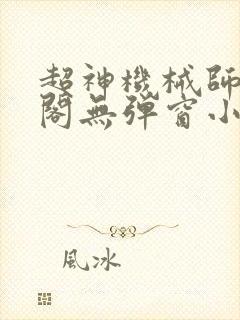 超神機械師
閣無彈窗小
風冰